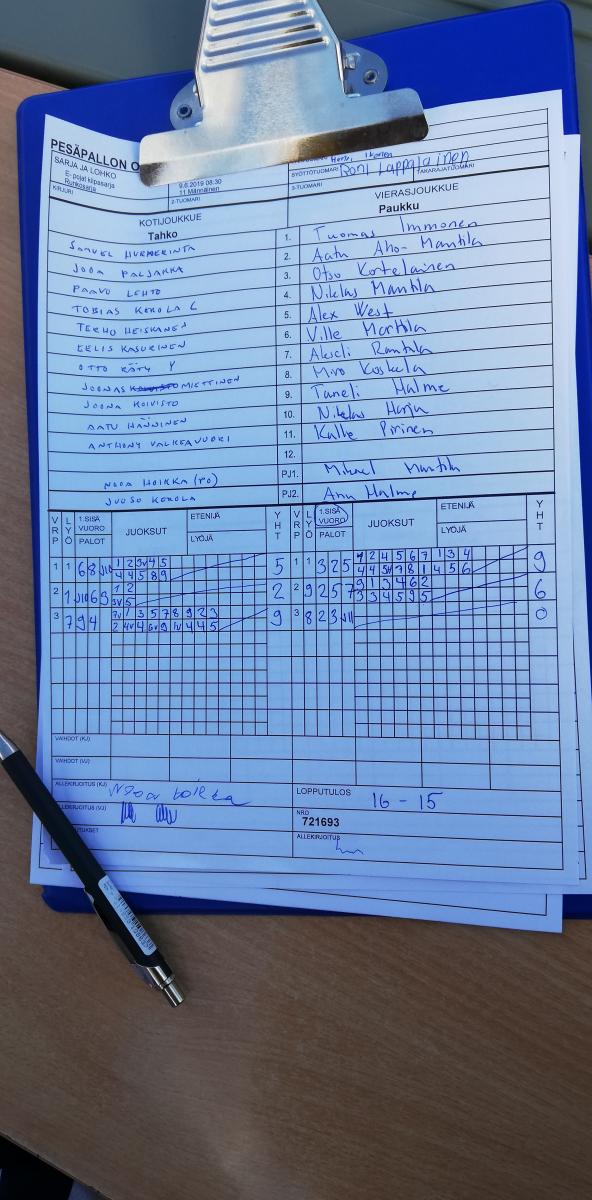 PESÄPALLON O
SARJA JA LOHKO
E-pojat kilpasarja
Runkosarja
KIRJURI
9.6.2019 08:30
11 Männäinen
2-TUOMARI
SYÖTTÖTUOMARI Roni Lappalainen TAKARAJATUOMARI
3-TUOMARI
KOTIJOUKKUE
Tahko
VIERASJOUKKUE
Paukku
SAMUEL HURMERINTA 1. Tuomas Immonen
JOOA PALJAKKA 2. Aatu Aho-Mantila
PAAVO LEHTO 3. Otso Kortelainen
TOBIAS KOKOLA C 4. Niklas Mantila
TERHO HEISKANEN 5. Alex West
EELIS KASURINEN 6. Ville Marttila
OTTO RÄTY Y 7. Akseli Rantala
JOONAS MIETTINEN 8. Miro Koskela
JOONA KOIVISTO 9. Taneli Halme
AATU HÄNNINEN 10. Niklas Harju
ANTHONY VALKEAVUORI 11. Kalle Pirinen
12.
NOOA HOIKKA (PO) PJ1. Mikael Mantila
JUUSO KOKOLA PJ2. Anu Halme
VRP LYÖ 1.SISÄ VUORO PALOT JUOKSUT ETENIJÄ LYÖJÄ YHT 1.SISÄ VUORO PALOT JUOKSUT ETENIJÄ LYÖJÄ YHT
1 1 6 8 1 2 3V 4 5 5 1 1 3 2 5 1 2 4 5 6 7 1 3 4 9
4 4 5 8 9 4 4 5H 7 8 1 4 5 6
2 1 6 3 1 2 2 2 9 2 5 7 9 1 3 4 6 2 6
3V 5 3 3 4 5 9 5
3 7 9 4 7V 1 3 5 7 8 9 2 3 9 3 8 2 3 0
2 4V 4 6V 9 1V 4 4 5
VAIHDOT (KJ)
VAIHDOT (VJ)
ALLEKIRJOITUS (KJ) Nooa hoikka
LOPPUTULOS 16 - 15
ALLEKIRJOITUS (VJ)
NRO
721693
ALLEKIRJOITUS